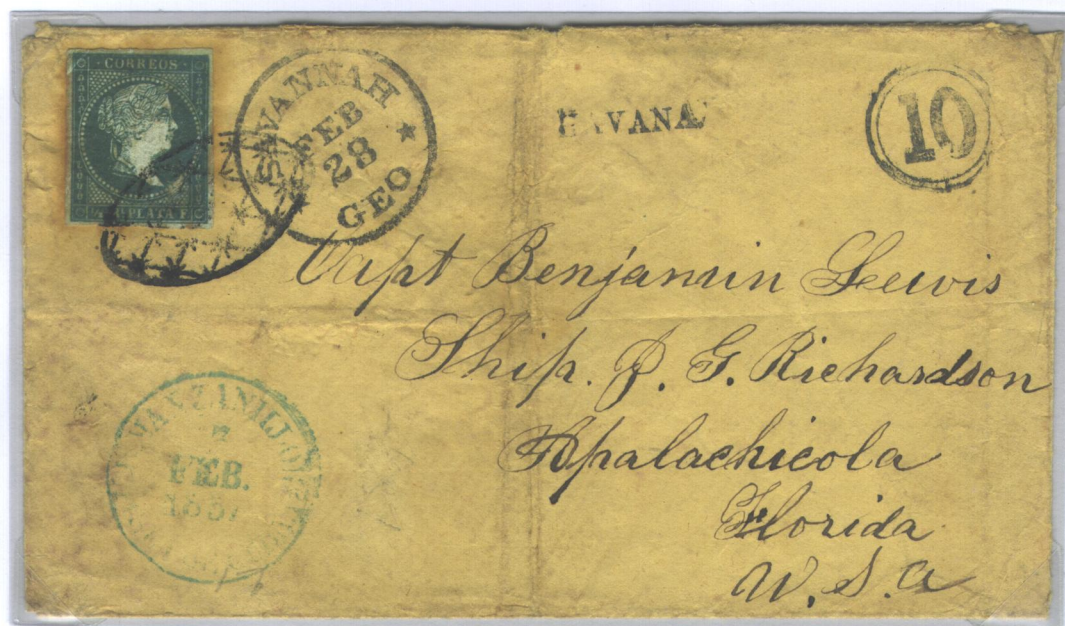 CORREOS
PLATA F
SAVANNAH
FEB
28
GEO
HAVANA
10
Capt Benjamin Lewis
Ship. J. G. Richardson
Apalachicola
Florida
U. S. a
MANZANILLO
7
FEB.
1857